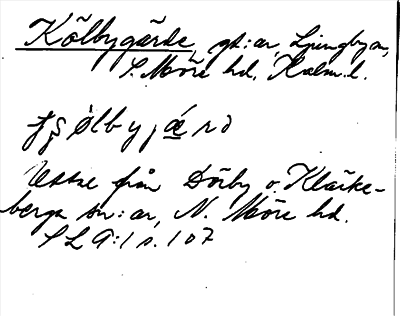 Kölbygärde, gd: ar, Ljungby sn,
S. Möre hd, Kalm. l.
ølbyjærd
Uttal från Dörby o. Kläcke-
berga sn: ar, N. Möre hd.
SL 9:1 s. 107